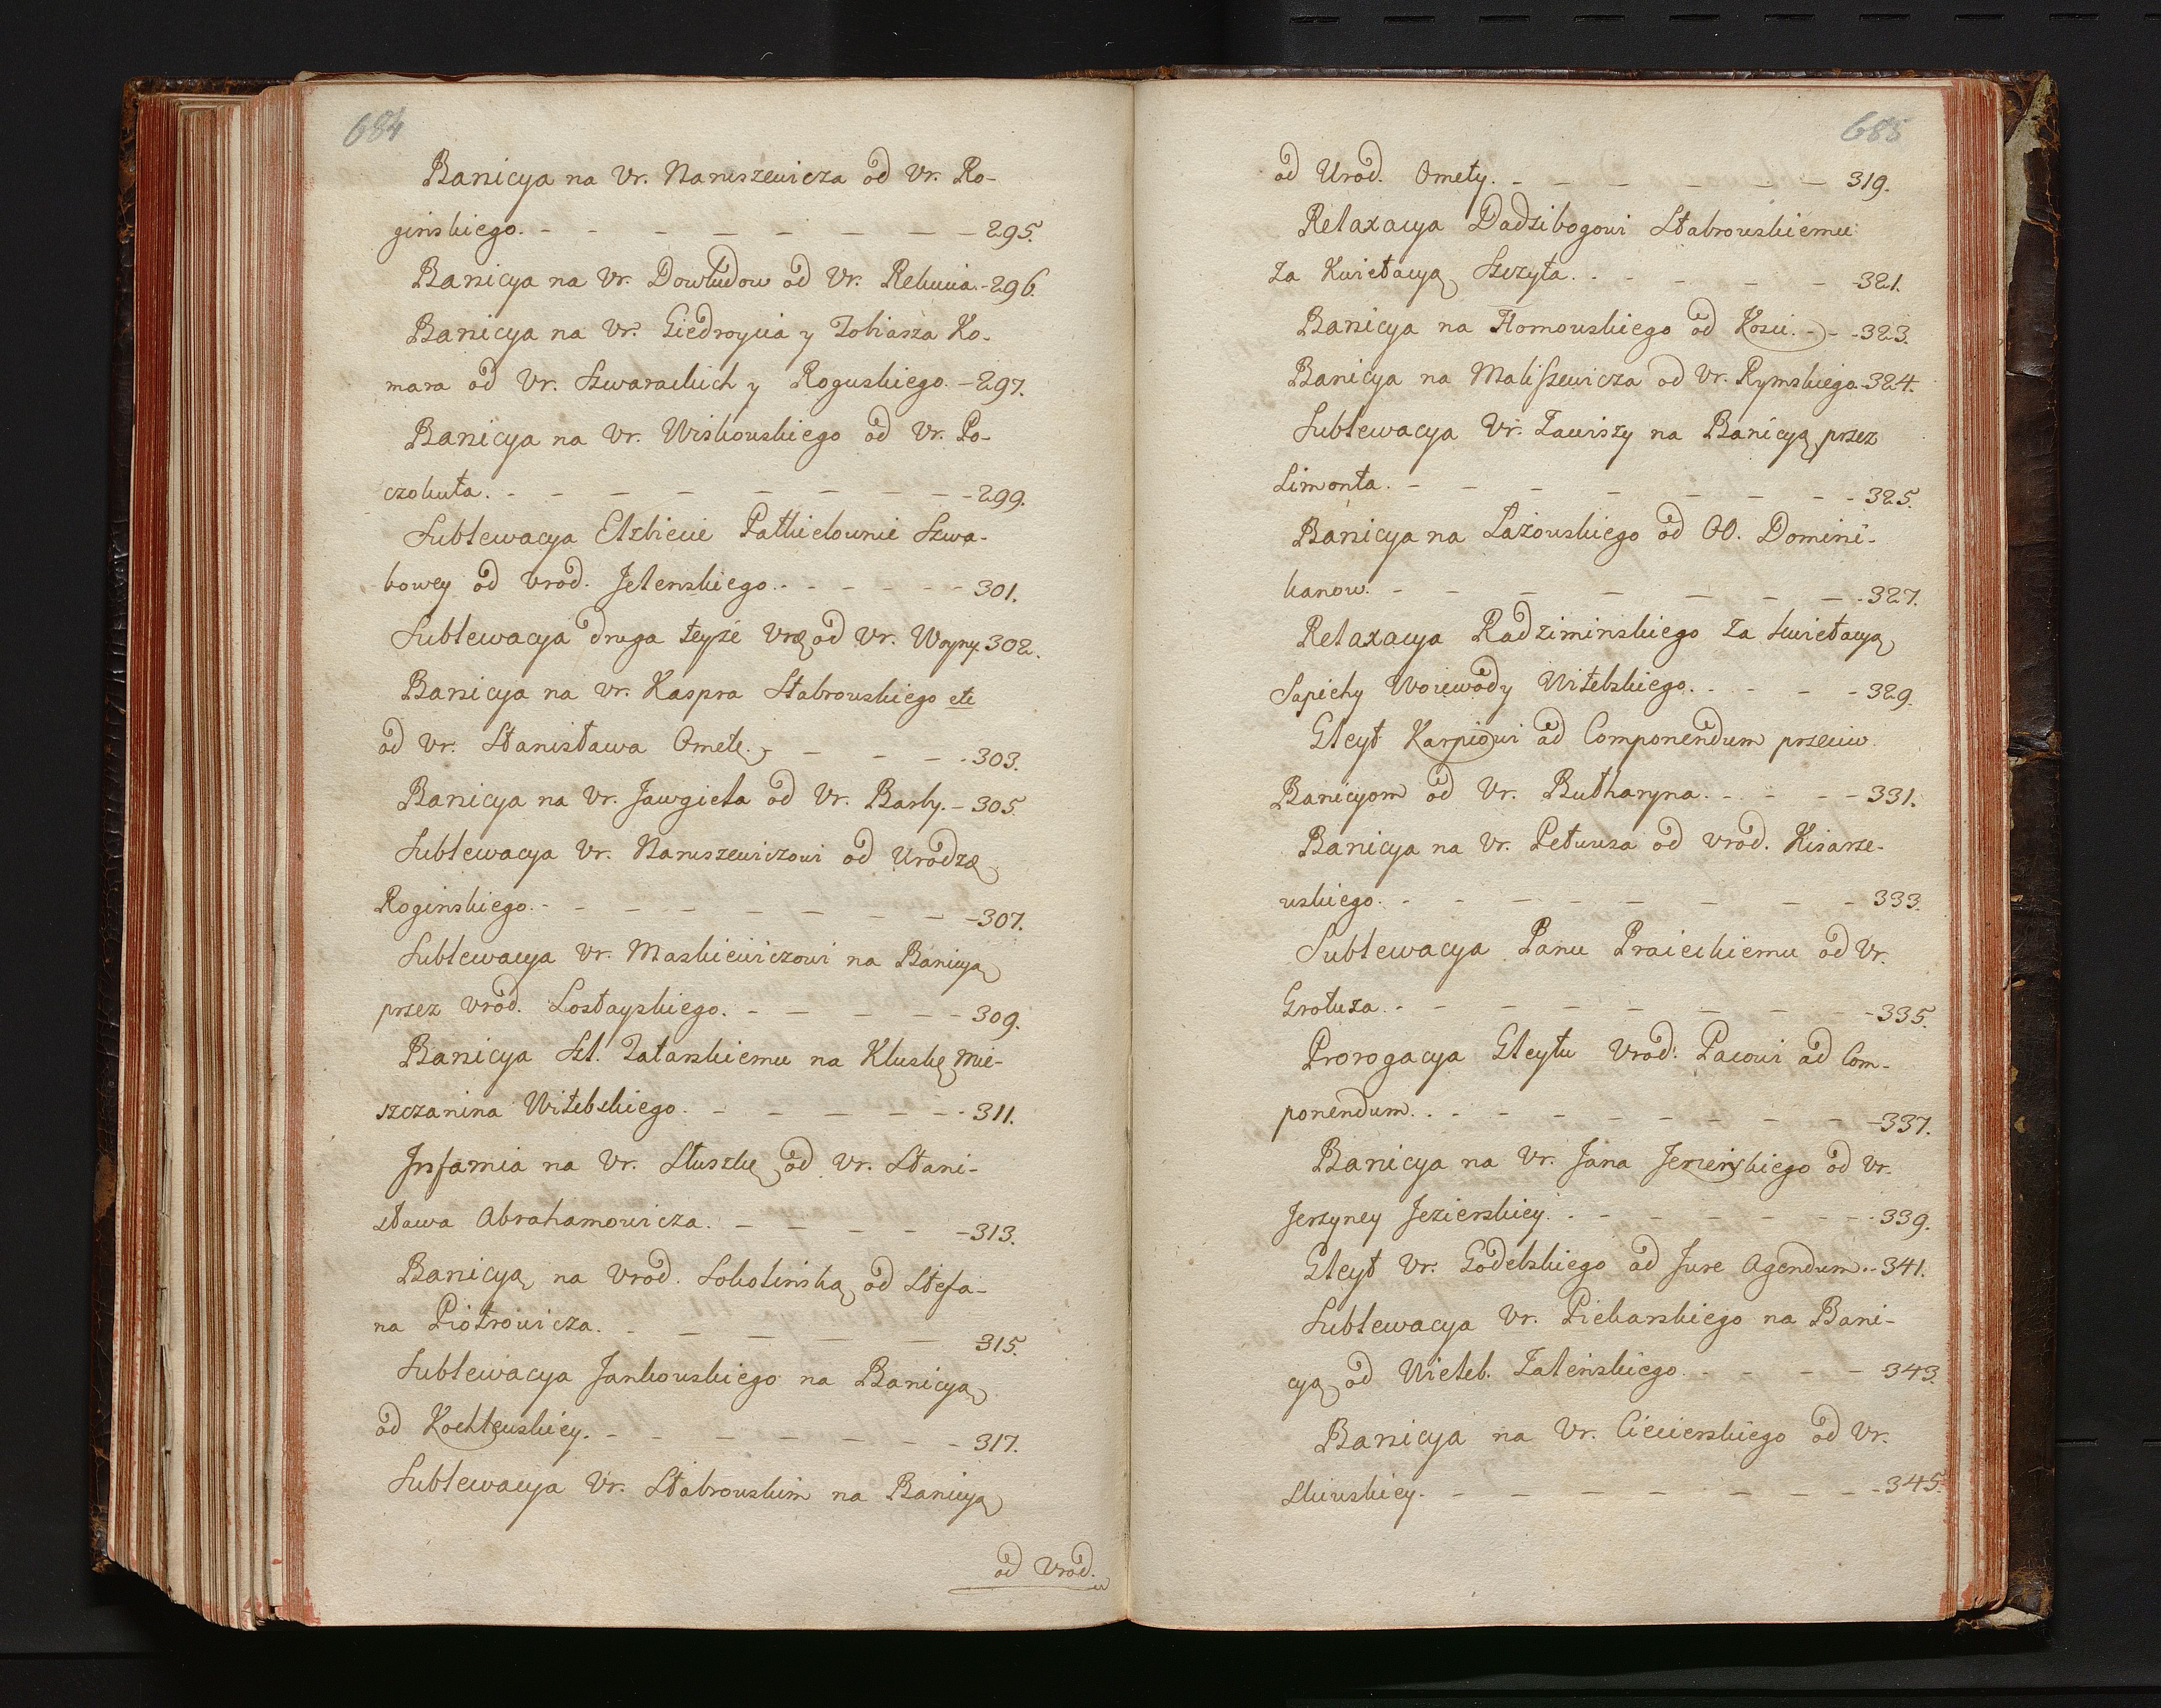 684
Banicya na Vr. Naruszewicza od Vr. Ro-
gińskiego. - - - - - - - - 295.
Banicya na Vr. Dowłudow od Vr. Rekucia. - 296.
Banicya na Vr. Giedroycia y Tobiasza Ko-
mara od Vr. Szwarackich y Roguskiego. - 297.
Banicya na Vr. Wiskouskiego od Vr. Po-
czobuta. - - - - - - - - 299.
Sublewacya Elzbiecie Patkielownie Szwa-
bowey od Vrod. Jelenskiego. - - - - 301.
Sublewacya druga teyże Vrę od Vr. Woyny. 302.
Banicya na Vr. Kaspra Stabrouskiego etc
od Vr. Stanisława Omete. - - - - 303.
Banicya na Vr. Jawgieła od Vr. Barby. - 305.
Sublewacya Vr. Naruszewiczowi od Urodzę
Roginskiego. - - - - - - - - 307.
Sublewacya Vr. Maskiewiczowi na Banicyą
przez Vrod. Łostayskiego. - - - - - 309.
Banicya Szl. Tatarskiemu na Kluskę Mie-
szczanina Witebskiego. - - - - - 311.
Infamia na Vr. Słuszkę od Vr. Stani-
sława Abrahamowicza. - - - - - 313.
Banicyą na Vrod. Sokolińską od Stefa-
na Piotrowicza. - - - - - - 315.
Sublewacya Jankouskiego na Banicyą
od Kochłeuskiey. - - - - - - - 317.
Sublewacya Vr. Stabrouskim na Banicyą
od Vrod.
685
od Urod. Omety. - - - - - - 319.
Relaxacya Dadzibogowi Stabrouskiemu
Za Kwietacyą Szczyta. - - - - - 321.
Banicya na Homouskiego od Kosci. - - 323.
Banicya na Maliszewicza od Vr. Rymskiego. 324.
Sublewacya Vr. Zawiszy na Banicyą przez
Limonta. - - - - - - - - 325.
Banicya na Łażouskiego od OO. Domini-
kanow. - - - - - - - - 327.
Relaxacya Radziminskiego Za kwietacyą
Sapiehy Woiewody Witebskiego. - - - 329.
Gleyt Karpiowi ad Componendum przeciw
Banicyom od Vr. Butharyna. - - - - 331.
Banicya na Vr. Petucza od Vrod. Kisarze-
uskiego. - - - - - - - - 333.
Sublewacya Panu Praieckiemu od Vr.
Grotuza. - - - - - - - - 335.
Prorogacya Gleytu Vrod. Pacowi ad Com-
ponendum. - - - - - - - - 337.
Banicya na Vr. Jana Jezierskiego od Vr.
Jerzyney Jezierskiey. - - - - - - 339.
Gleyt Vr. Godebskiego ad Jure Agendum. - 341.
Sublewacya Vr. Piekarskiego na Bani-
cyą od Wieleb. Zaleńskiego. - - - - 343.
Banicya na Vr. Ciecierskiego od Vr.
- - - - - - - - 345.